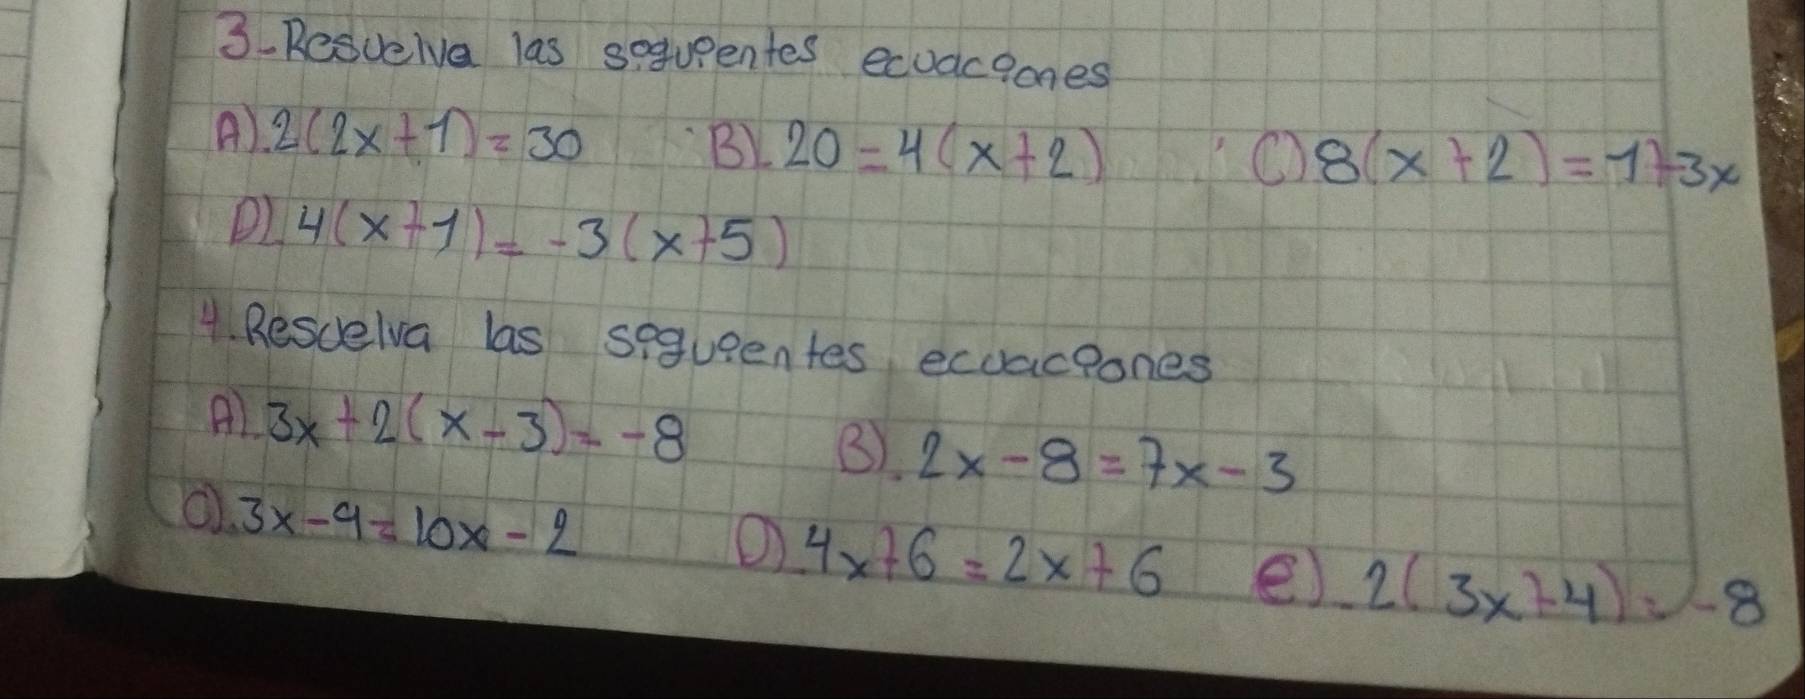 3-Resuelva las siguientes ecuaciones
A).2(2x+1)=30 B).20=4(x+2) C)8(x+2)=1+3x
D).4(x+1)=-3(x+5)
4.Resuelva las siguientes ecuaciones
A).3x+2(x-3)=-8 B).2x-8=7x-3
C).3x-9=10x-2 D).4x+6=2x+6 e).2(3x+4)=-8